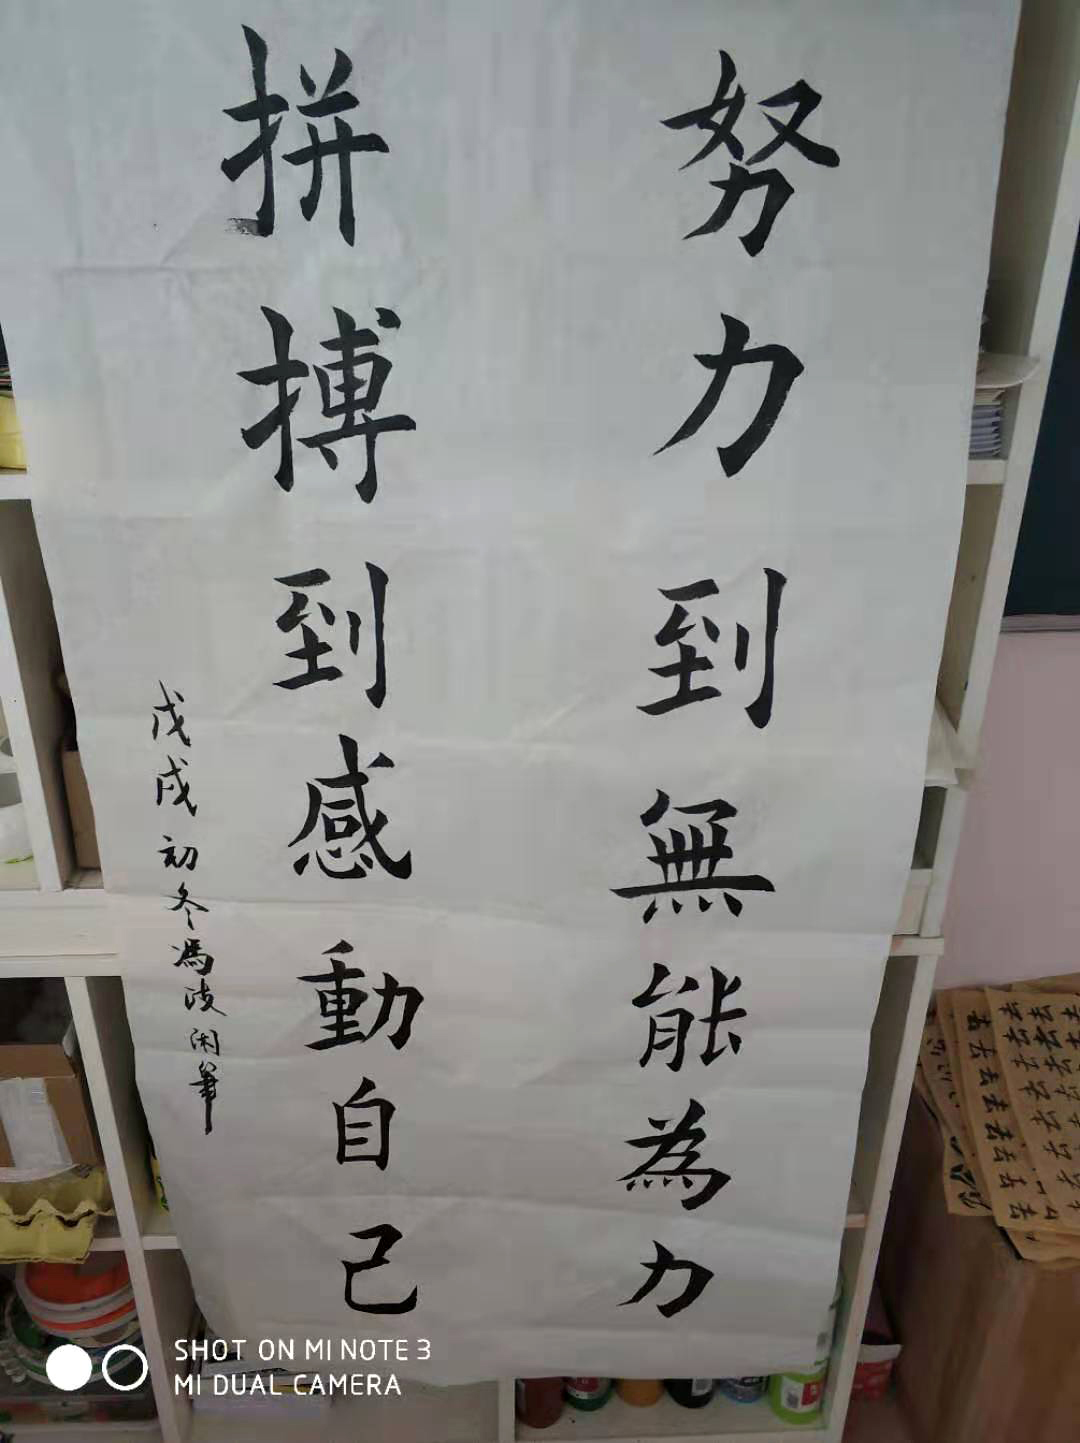 努力到無能為力
拼搏到感動自己
戊戌初冬馮波闲筆
SHOT ON MI NOTE 3
MI DUAL CAMERA